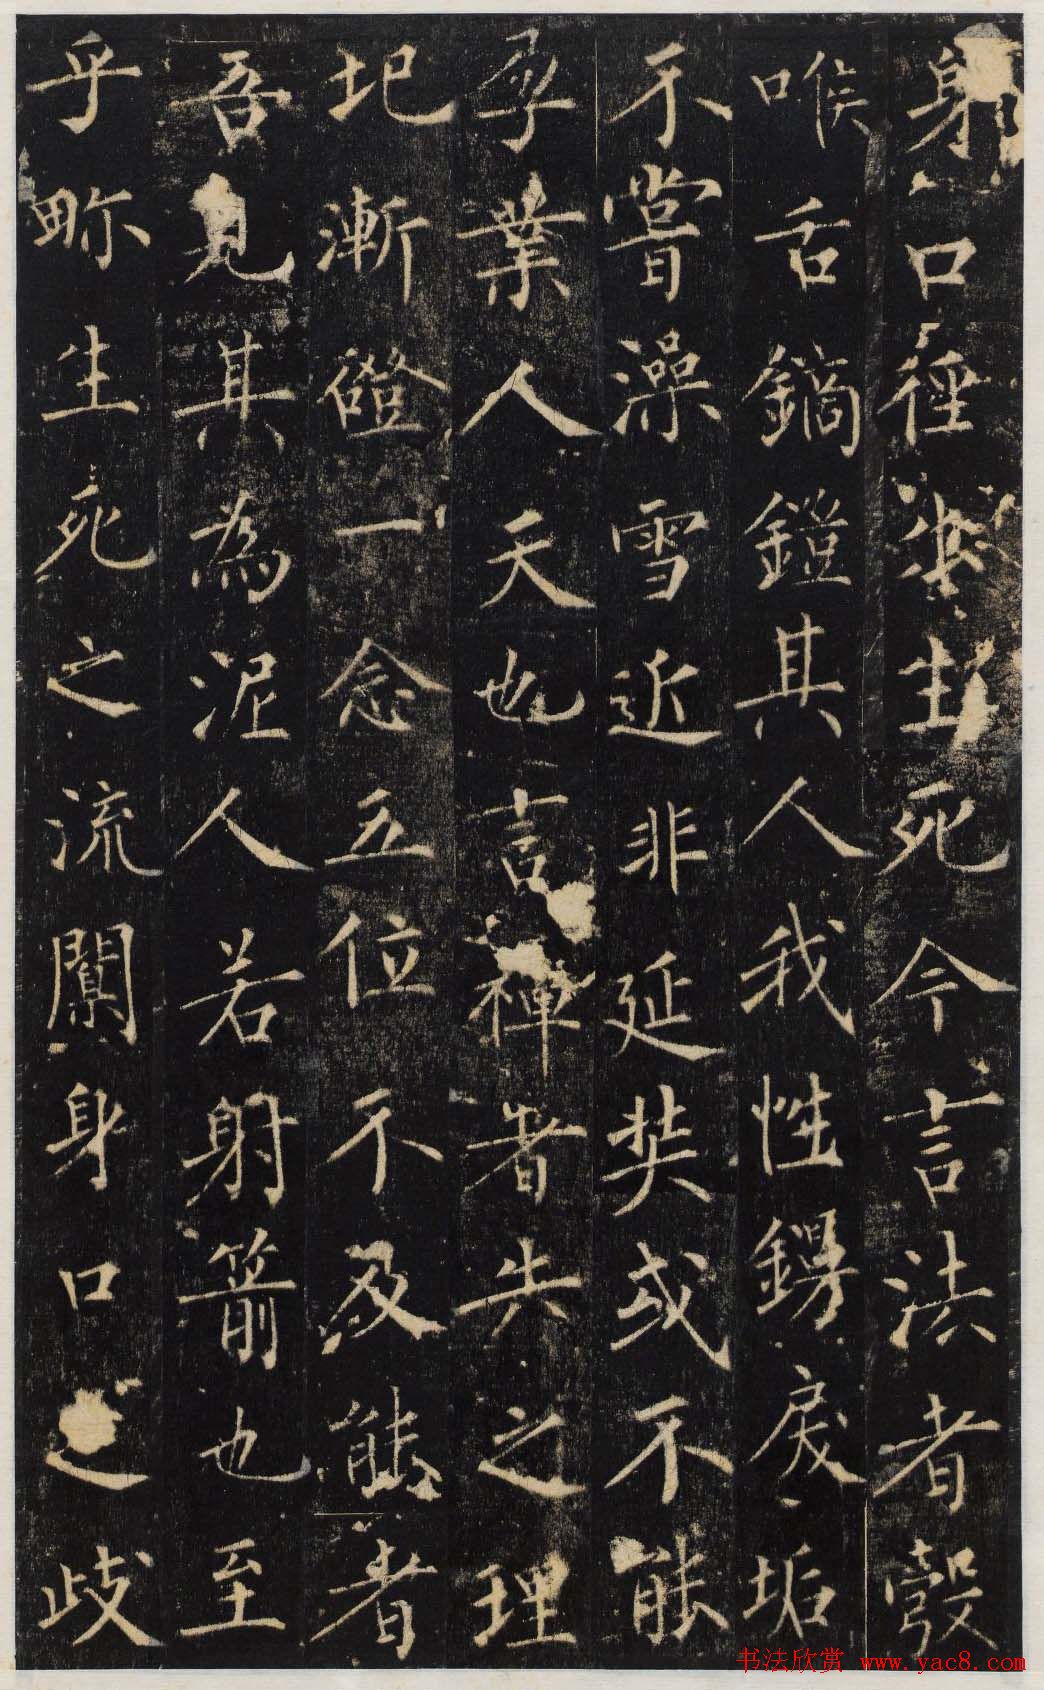 身口徑生死今言法者彀
喉舌鏑鎧其人我性戾垢
不嘗澡雪近非延奘或不能
孚業人天也言禪者失之理
圯漸磴一念五位不及能者
吾見其為泥人若射箭也至
乎畛生死之流闠身口之歧
书法欣赏 www.yac8.com